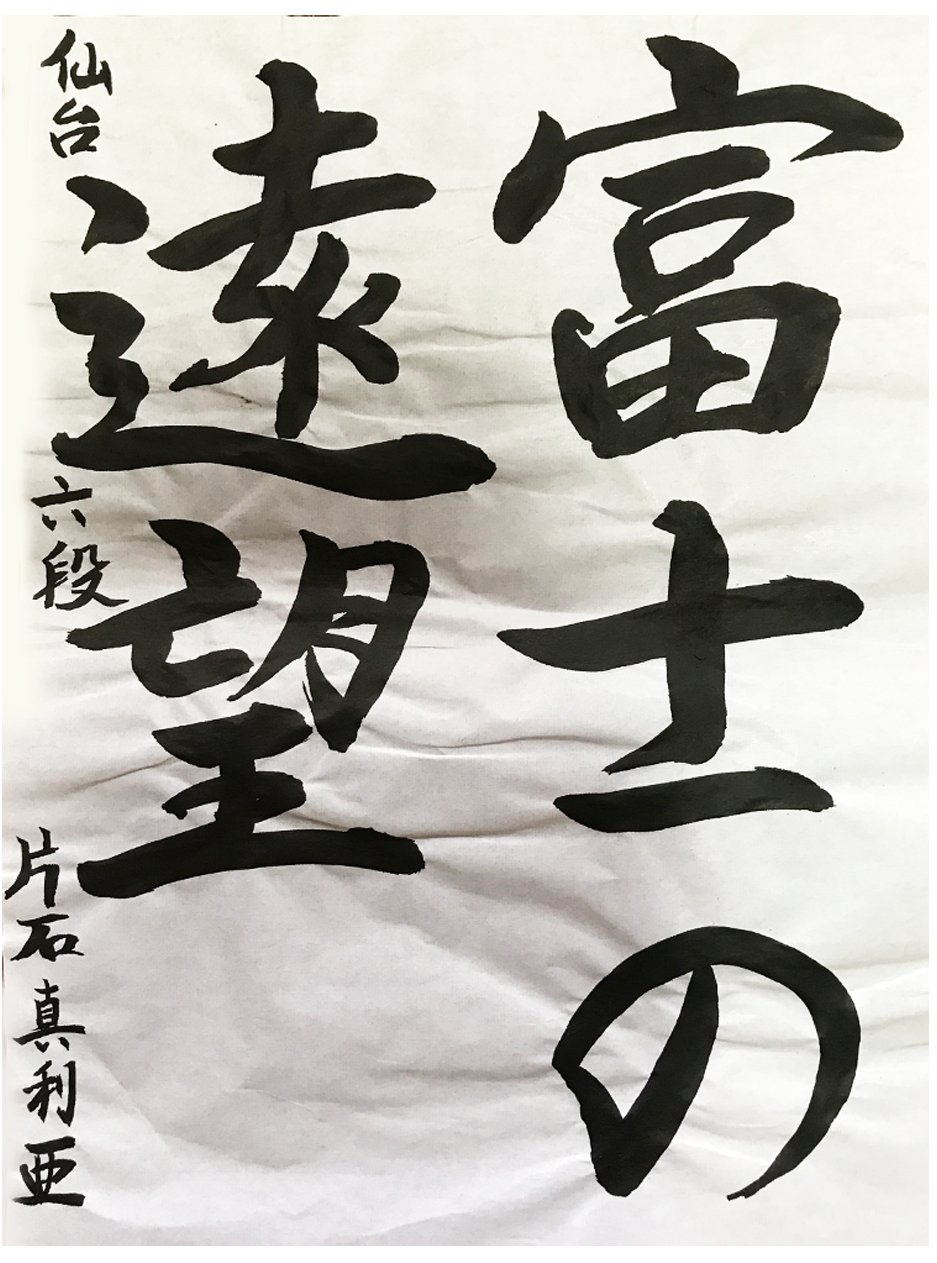 富士の
遠望
仙台 六段 片石真利亜